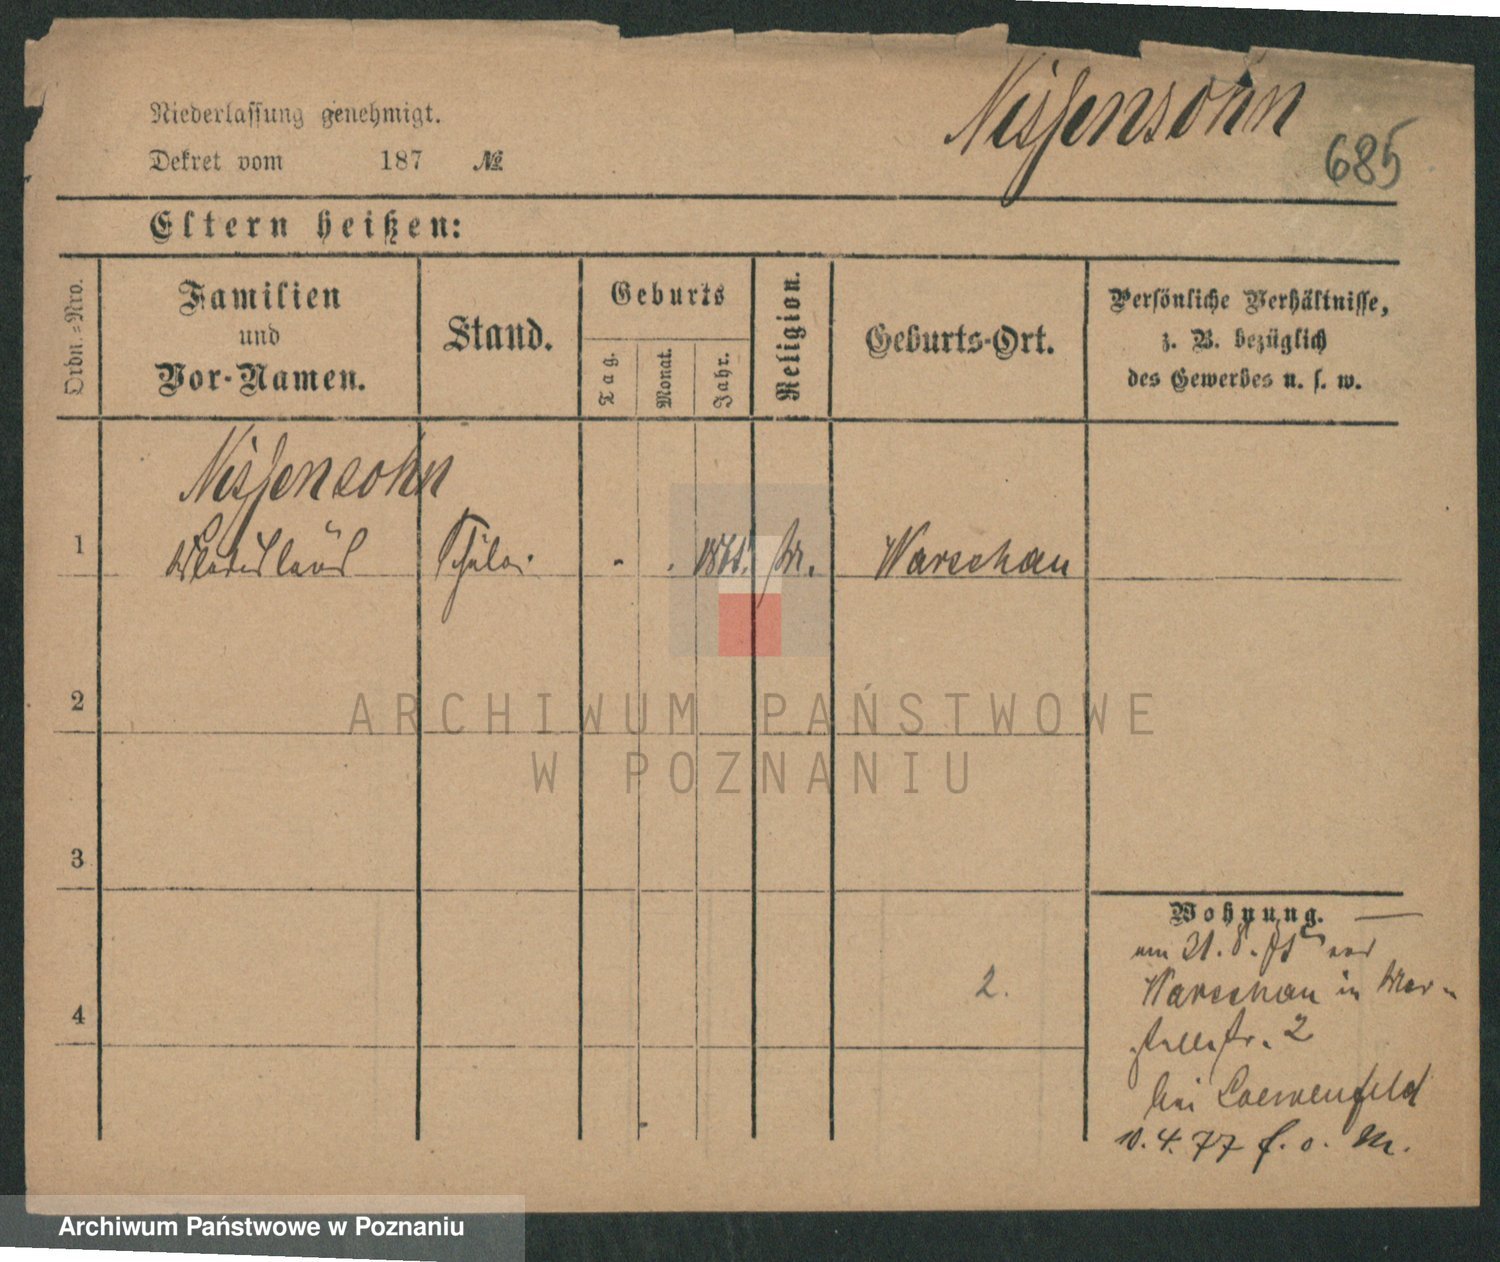 Niederlassung genehmigt.
Nissensohn
685
Dekret vom 187 №
Eltern heißen:
Ordn.-Nro.
Familien
und
Vor-Namen.
Stand.
Geburts
Tag.
Monat.
Jahr.
Religion.
Geburts-Ort.
Persönliche Verhältnisse,
z. B. bezüglich
des Gewerbes u. s. w.
Nissensohn
1 Wladislaus Schüler Warschau
2
3
4
2.
Wohnung.
am 21.8.75 aus
Warschau in
str. 2
bei Loewenfeld
10.4.77
ARCHIWUM PAŃSTWOWE
W POZNANIU
Archiwum Państwowe w Poznaniu